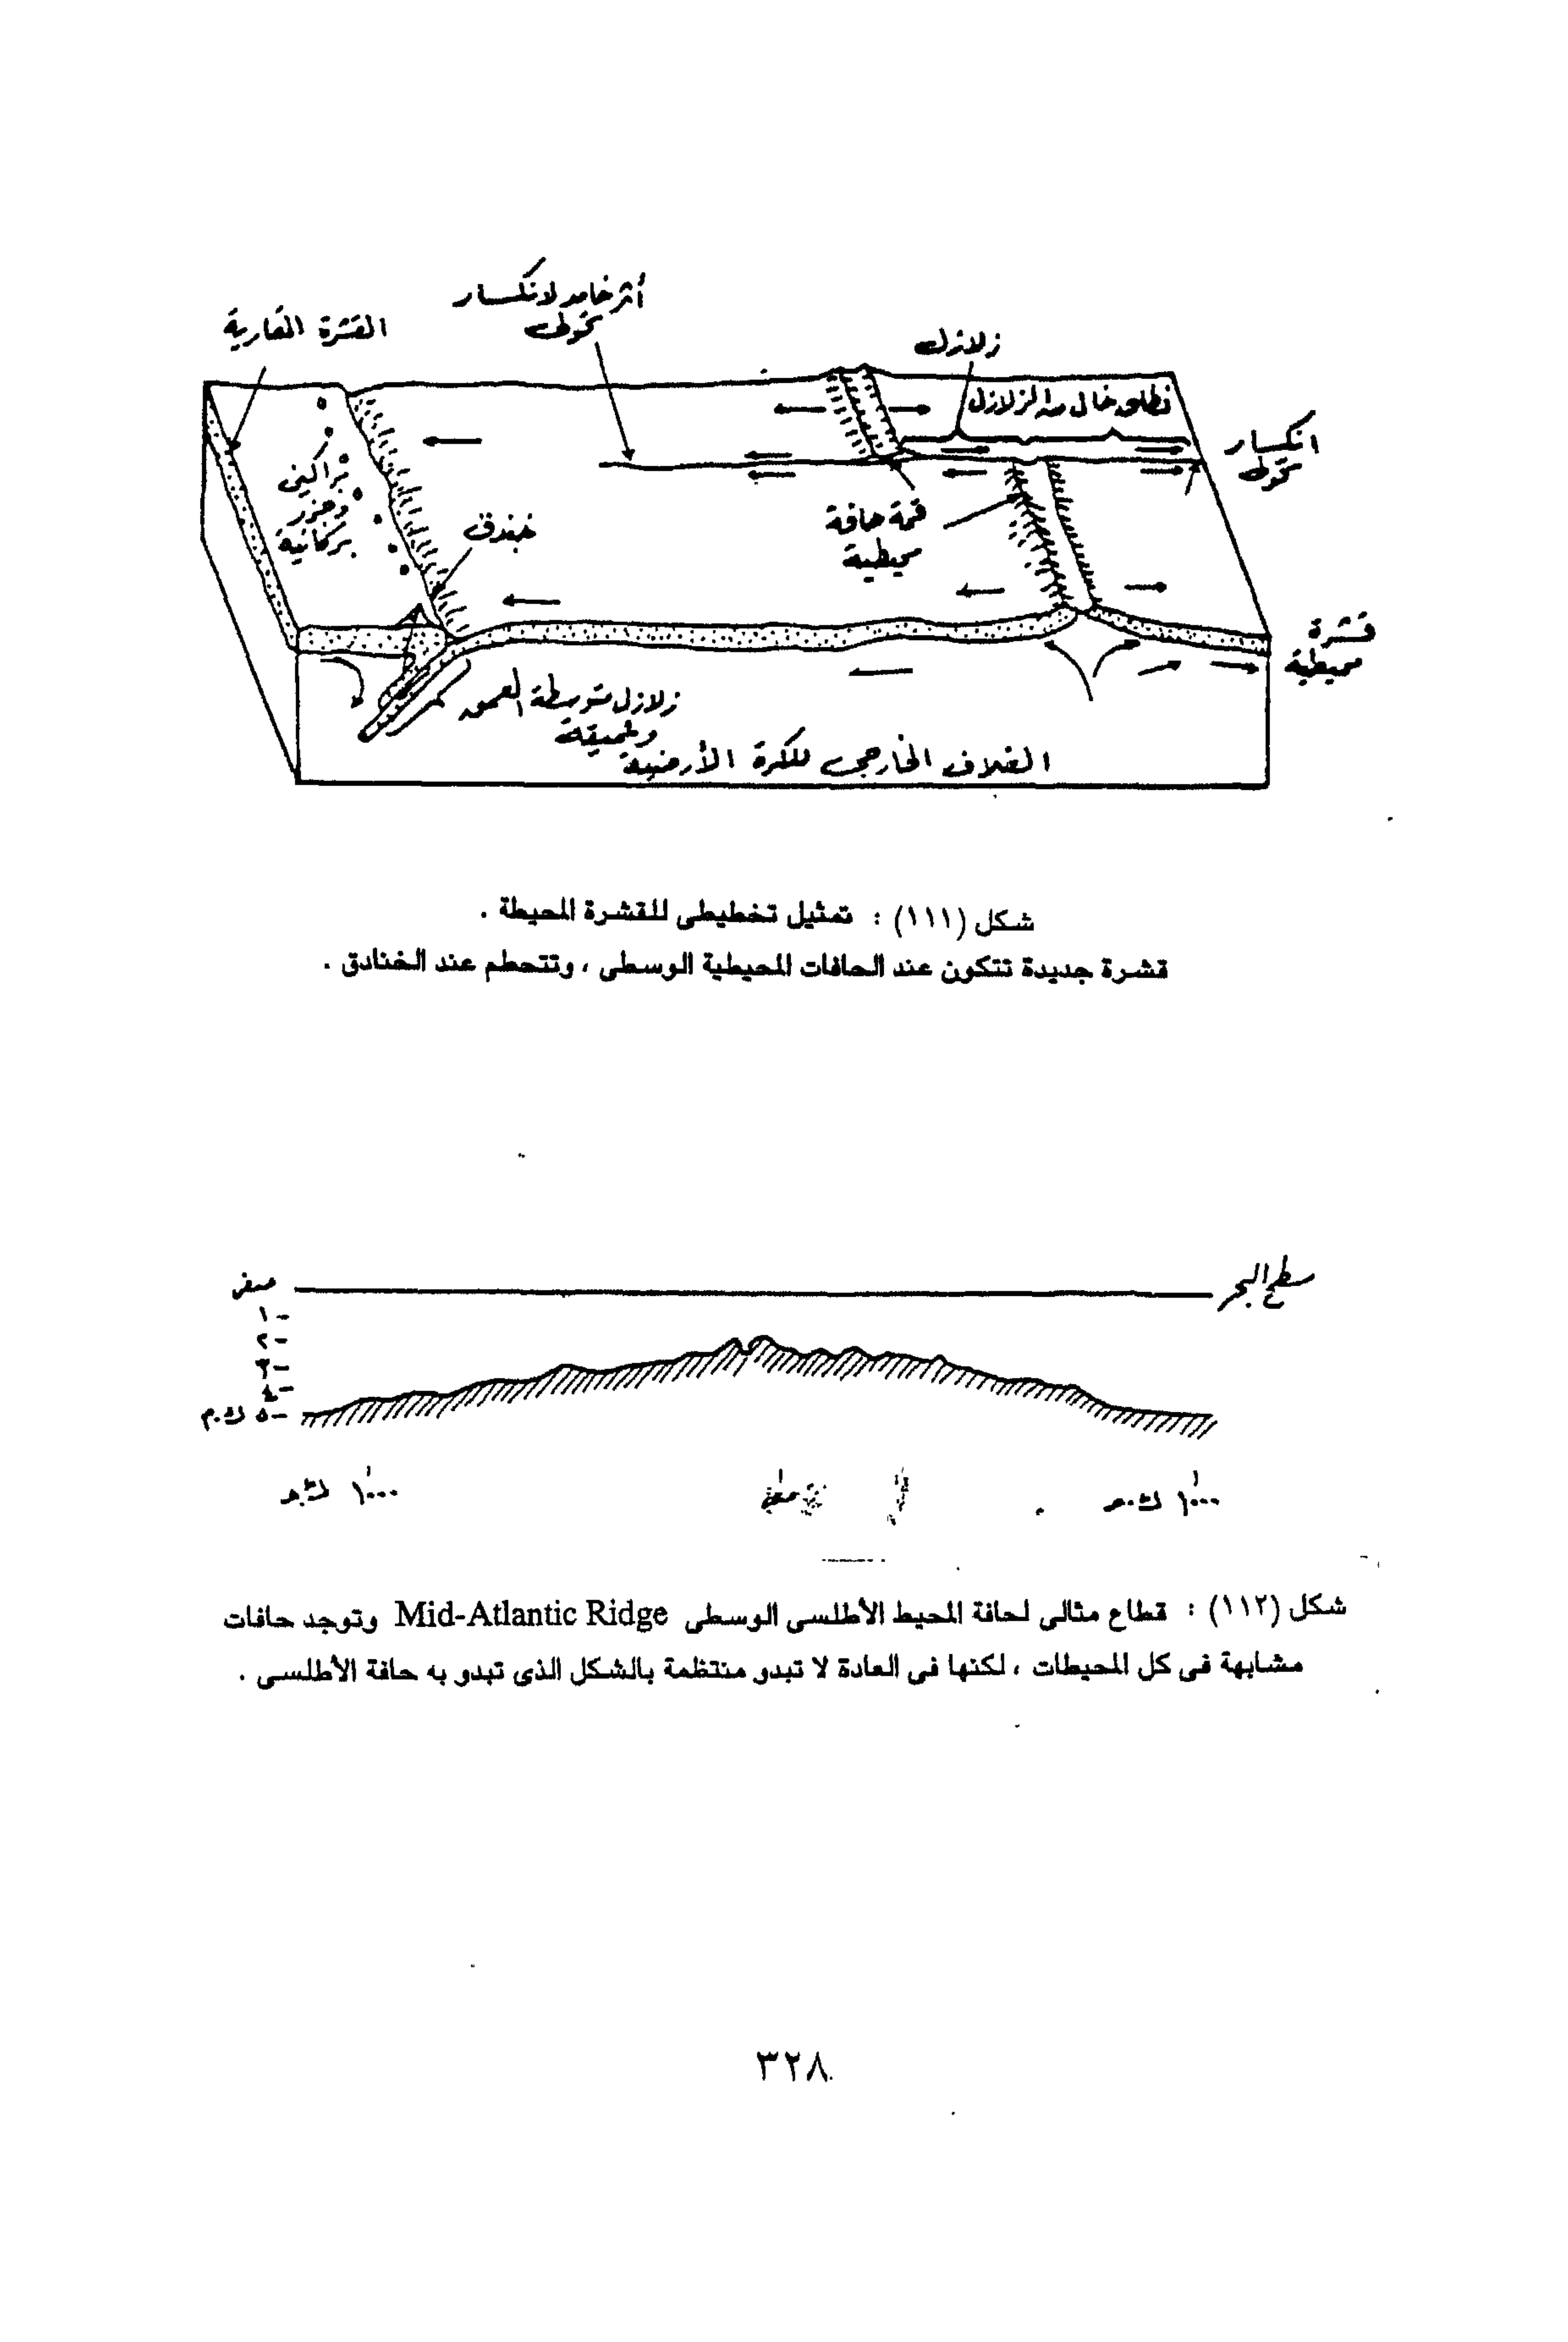 أثر خامد لانكسار
تحولى
القشرة القارية
زلازل
نطاق خال من الزلازل
انكسار
تحولى
براكين
وجزر
بركانية
خندق
قمة حافة
محيطية
قشرة
محيطية
زلازل متوسطة العمق
وعميقة
الغلاف الخارجى للكرة الأرضية
شكل (١١١) : تمثيل تخطيطى للقشرة المحيطة .
قشرة جديدة تتكون عند الحافات المحيطية الوسطى ، وتتحطم عند الخنادق .
سطح البحر
صفر
١ -
٢ -
٣ -
٤ -
٥ - ك.م
١٠٠٠ ك.م
١٠٠٠ ك.م
شكل (١١٢) : قطاع مثالى لحافة المحيط الأطلسى الوسطى Mid-Atlantic Ridge وتوجد حافات
مشابهة فى كل المحيطات ، لكنها فى العادة لا تبدو منتظمة بالشكل الذى تبدو به حافة الأطلسى .
٣٢٨